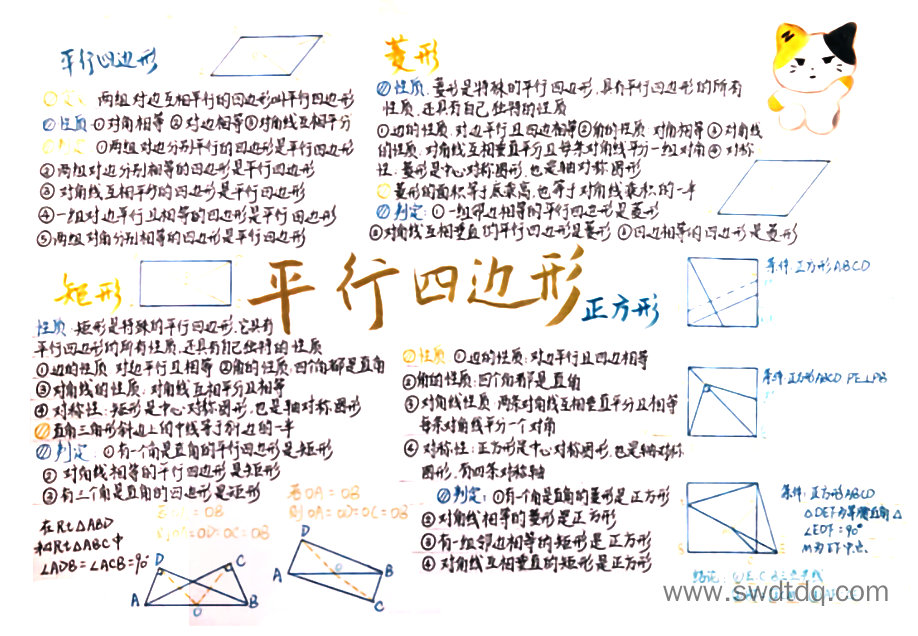 平行四边形
两组对边互相平行的四边形叫平行四边形
性质:①对角相等 ②对边相等 ③对角线互相平分
①两组对边分别平行的四边形是平行四边形
②两组对边分别相等的四边形是平行四边形
③对角线互相平分的四边形是平行四边形
④一组对边平行且相等的四边形是平行四边形
⑤两组对角分别相等的四边形是平行四边形
菱形
性质:菱形是特殊的平行四边形,具有平行四边形的所有
性质,还具有自己独特的性质
①边的性质:对边平行且四边相等②角的性质:对角相等③对角线
的性质:对角线互相垂直平分且每条对角线平分一组对角④对称
性:菱形是中心对称图形,也是轴对称图形
菱形的面积等于底乘高,也等于对角线乘积的一半
判定:①一组邻边相等的平行四边形是菱形
②对角线互相垂直的平行四边形是菱形 ③四边相等的四边形是菱形
平行四边形
矩形
性质:矩形是特殊的平行四边形,它具有
平行四边形的所有性质,还具有自己独特的性质
①边的性质:对边平行且相等 ②角的性质:四个角都是直角
③对角线的性质:对角线互相平分且相等
④对称性:矩形是中心对称图形,也是轴对称图形
直角三角形斜边上的中线等于斜边的一半
判定:①有一个角是直角的平行四边形是矩形
②对角线相等的平行四边形是矩形
③有三个角是直角的四边形是矩形
在Rt△ABD
和Rt△ABC中
∠ADB=∠ACB=90°
OA=OB
OA=OD=OC=OB
若OA=OB
则OA=OD=OC=OB
D
C
A
O
B
D
A
O
B
C
正方形
性质 ①边的性质:对边平行且四边相等
②角的性质:四个角都是直角
③对角线性质:两条对角线互相垂直平分且相等
每条对角线平分一个对角
④对称性:正方形是中心对称图形,也是轴对称
图形,有四条对称轴
判定:①有一个角是直角的菱形是正方形
②对角线相等的菱形是正方形
③有一组邻边相等的矩形是正方形
④对角线互相垂直的矩形是正方形
条件:正方形ABCD
条件:正方形ABCD PE⊥PB
条件:正方形ABCD
△DEF为等腰直角△
∠EDF=90°
M为EF中点
结论:
www.swdtdq.com